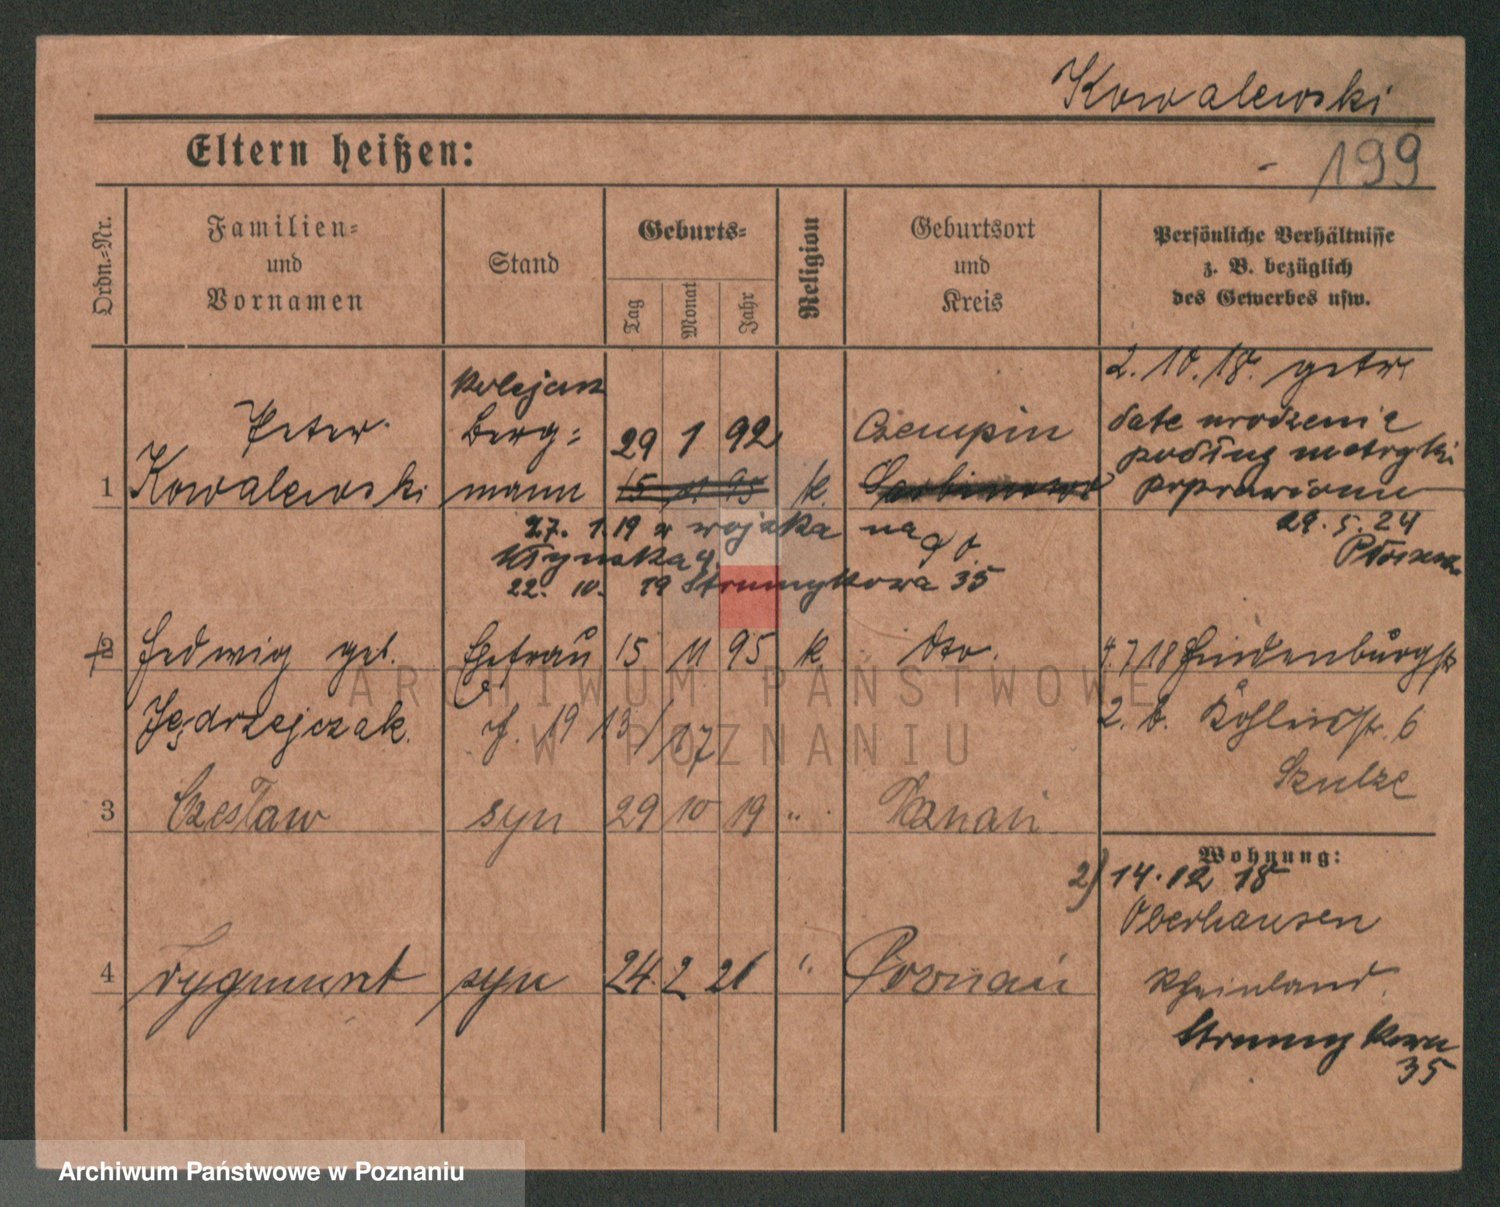 Kowalewski
Eltern heißen:
- 199
Ordn.-Nr.
Familien-
und
Vornamen
Stand
Geburts-
Tag
Monat
Jahr
Religion
Geburtsort
und
Kreis
Persönliche Verhältnisse
z. B. bezüglich
des Gewerbes usw.
2. 10. 18. getr.
kolejarz
Peter
Berg-
29 1 92
Czempin
date urodzenie
podług metryki
1 Kowalewski
mann
15 11 95
k.
poprawiono
29. 5. 24
27. 1. 19 z wojska na
22. 10. 19 Strumykowa 35
2 Hedwig geb.
Ehefrau
15 11 95
k
dto.
4. 7 18 Hindenburgstr
Jędrzejczak.
rf. 19 13/17
2. b. 6
Szulze
3 Czesław
syn
29 10 19
"
Poznań
Wohnung:
2) 14. 12 18
Oberhausen
4 Zygmunt
syn
24. 2 21
"
Poznań
Rheinland.
Strumykowa
35
ARCHIWUM PAŃSTWOWE
W POZNANIU
Archiwum Państwowe w Poznaniu